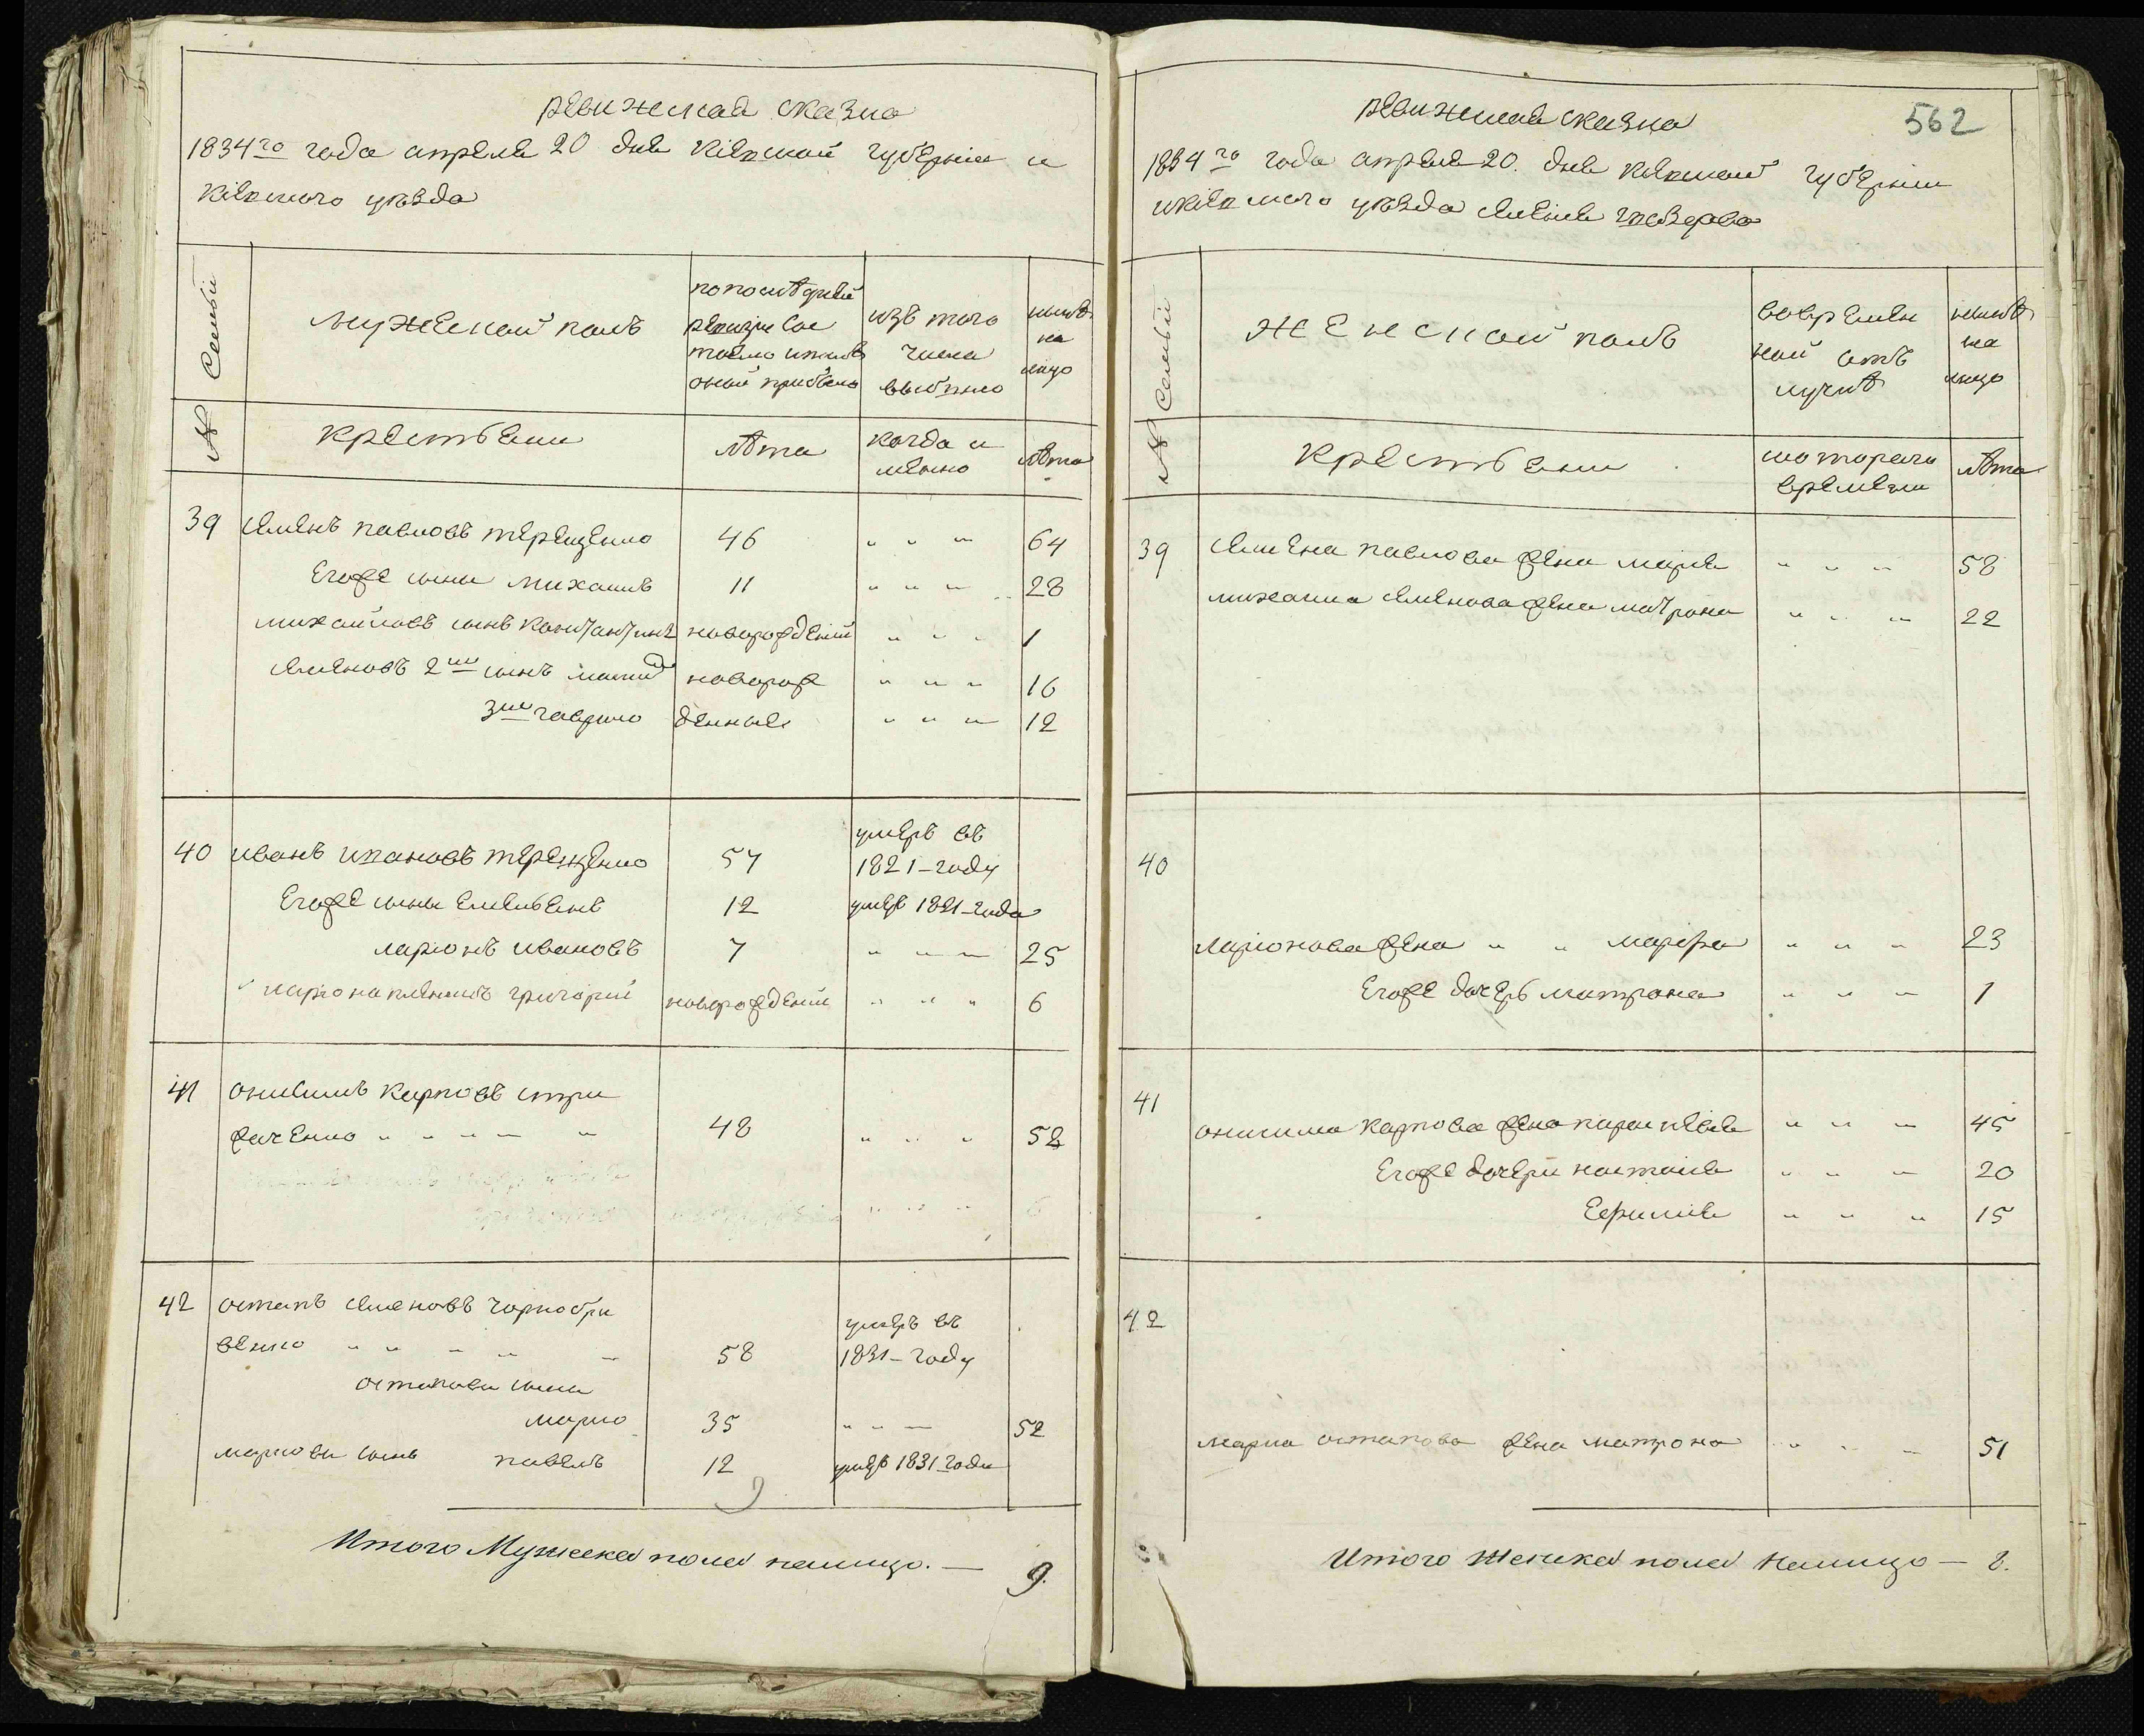 ревижская сказка
1834го года апреля 20 дня Кіевской губерніи и
Кіевского уѣзда
№ Семьи
мужеской полъ
по послѣдней
ревизіи сос
тояло и послѣ
оной прибыло
изъ того
числа
выбыло
нынѣ
на
лицо
крестьяни
лѣта
когда и
менно
лѣта
39 Семенъ павловъ терещенко 46 " " " 64
Егоже сыны михаилъ 11 " " " 28
михайловъ сынъ констандинъ новорожденій " " " 1
Семеновъ 2й сынъ новорож " " " 16
3й гаврило денные " " " 12
умеръ въ
40 иванъ ивановъ терещенко 57 1821-году
Егоже сыны Емельянъ 12 умеръ 1821-года
ларіонъ ивановъ 7 " " " 25
ларіона григорий новорожденій " " " 6
41 онисимъ карповъ стри
жаченко " " " " " 48 " " " 52
42 остапъ семеновъ чорнобри
умеръ въ
венко " " " " " 58 1831-году
остапови сыни
марко 35 " " " 52
маркови сынъ павелъ 12 умеръ 1831 года
9
Итого Мужеска пола налицо. — 9.
562
ревижская сказка
1834го года апреля 20. дня Кіевской губерніи
и Кіевского уѣзда селенія гвоздова
№ Семьи
женской полъ
во времен
ной отъ
лучкѣ
нынѣ
на
лицо
крестьяни
с котораго
времени
лѣта
39 Семена павлова жена марія " " " 58
михаила семенова жена матрона " " " 22
40
ларіонова жена " " марфа " " " 23
Егоже дочерь матрона " " " 1
41
онисима карпова жена параскевія " " " 45
Егоже дочери настасія " " " 20
Ефимія " " " 15
42
марка остапова жена матрона " " " 51
Итого женска пола налицо — 8.